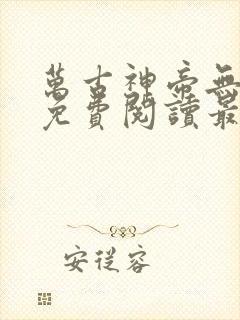 萬古神帝無
免費閱讀最
安從容